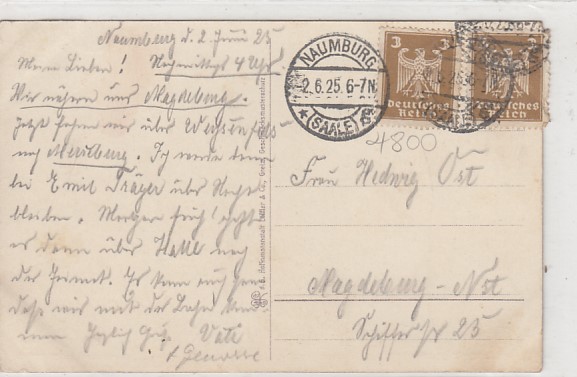 Naumburg d. 2. Juni 25
Meine Lieben! Nachmittags 4 Uhr
Wir nähern uns Magdeburg.
Jetzt fahren wir über Weissenfels
nach Merseburg. Ich werde dann
bei Emil Träger über Nacht
bleiben. Morgen früh geht
es dann über Halle nach
der Heimat. Es kann auch sein
daß wir mit der Bahn
Herzlich Vati
NAUMBURG
2.6.25.6-7N.
* (SAALE) b
3
Deutsches
Reich
3
Deutsches
Reich
4800
Frau Hedwig Ost
Magdeburg-Nst
Schifferstr 25